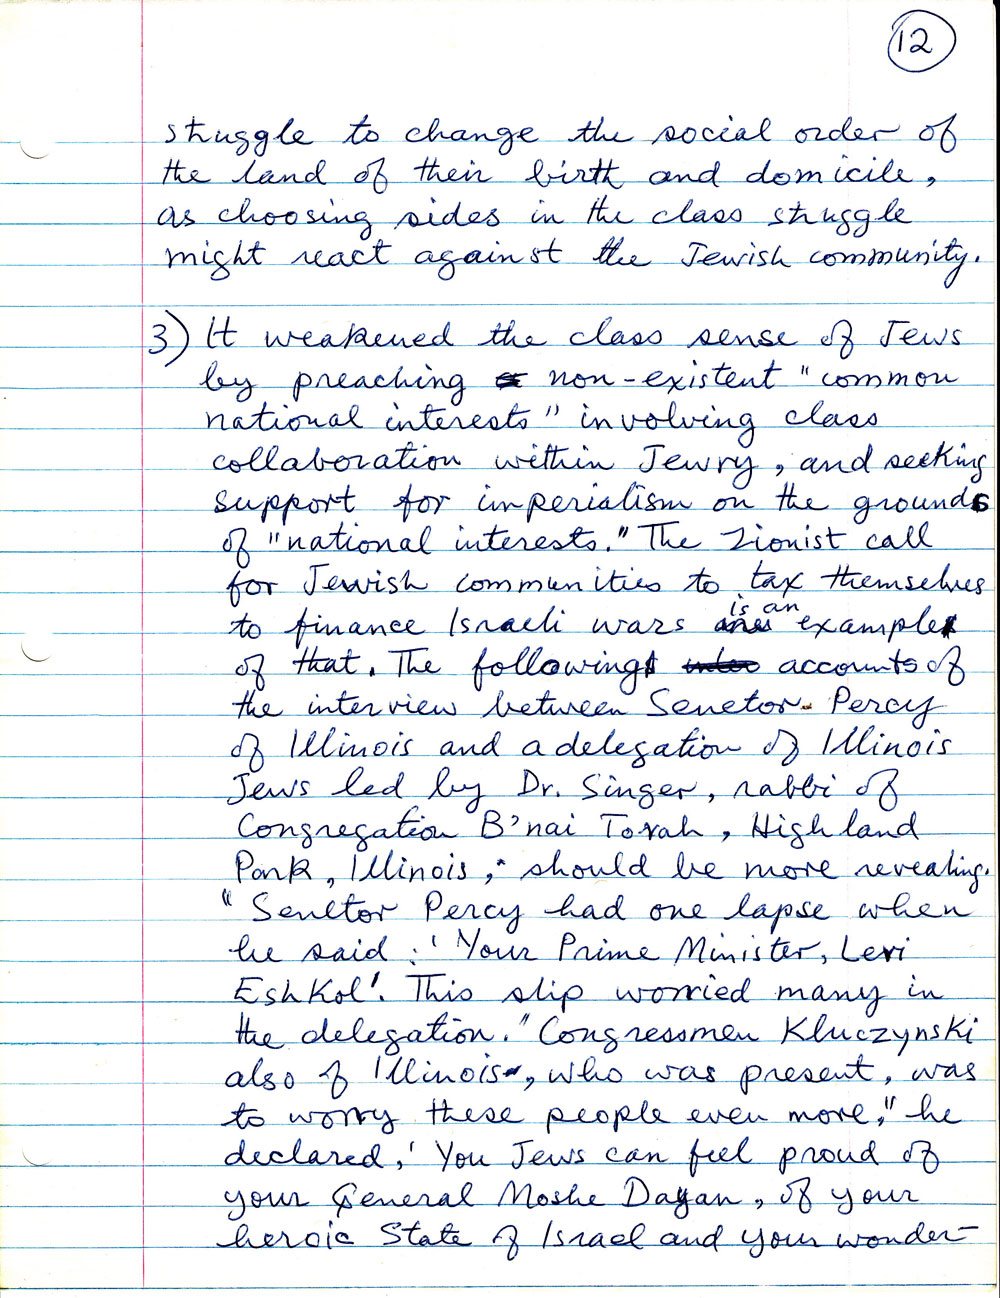 12
struggle to change the social order of
the land of their birth and domicile,
as choosing sides in the class struggle
might react against the Jewish community.
3) It weakened the class sense of Jews
by preaching non-existent "common
national interests" involving class
collaboration within Jewry, and seeking
support for imperialism on the grounds
of "national interests." The Zionist call
for Jewish communities to tax themselves
to finance Israeli wars is an example
of that. The following accounts of
the interview between Senetor Percy
of Illinois and a delegation of Illinois
Jews led by Dr. Singer, rabbi of
Congregation B'nai Torah, Highland
Park, Illinois, should be more revealing.
"Senetor Percy had one lapse when
he said: 'Your Prime Minister, Levi
Eshkol'. This slip worried many in
the delegation." Congressmen Kluczynski
also of Illinois, who was present, was
to worry these people even more," he
declared, 'You Jews can feel proud of
your General Moshe Dayan, of your
heroic State of Israel and your wonder-